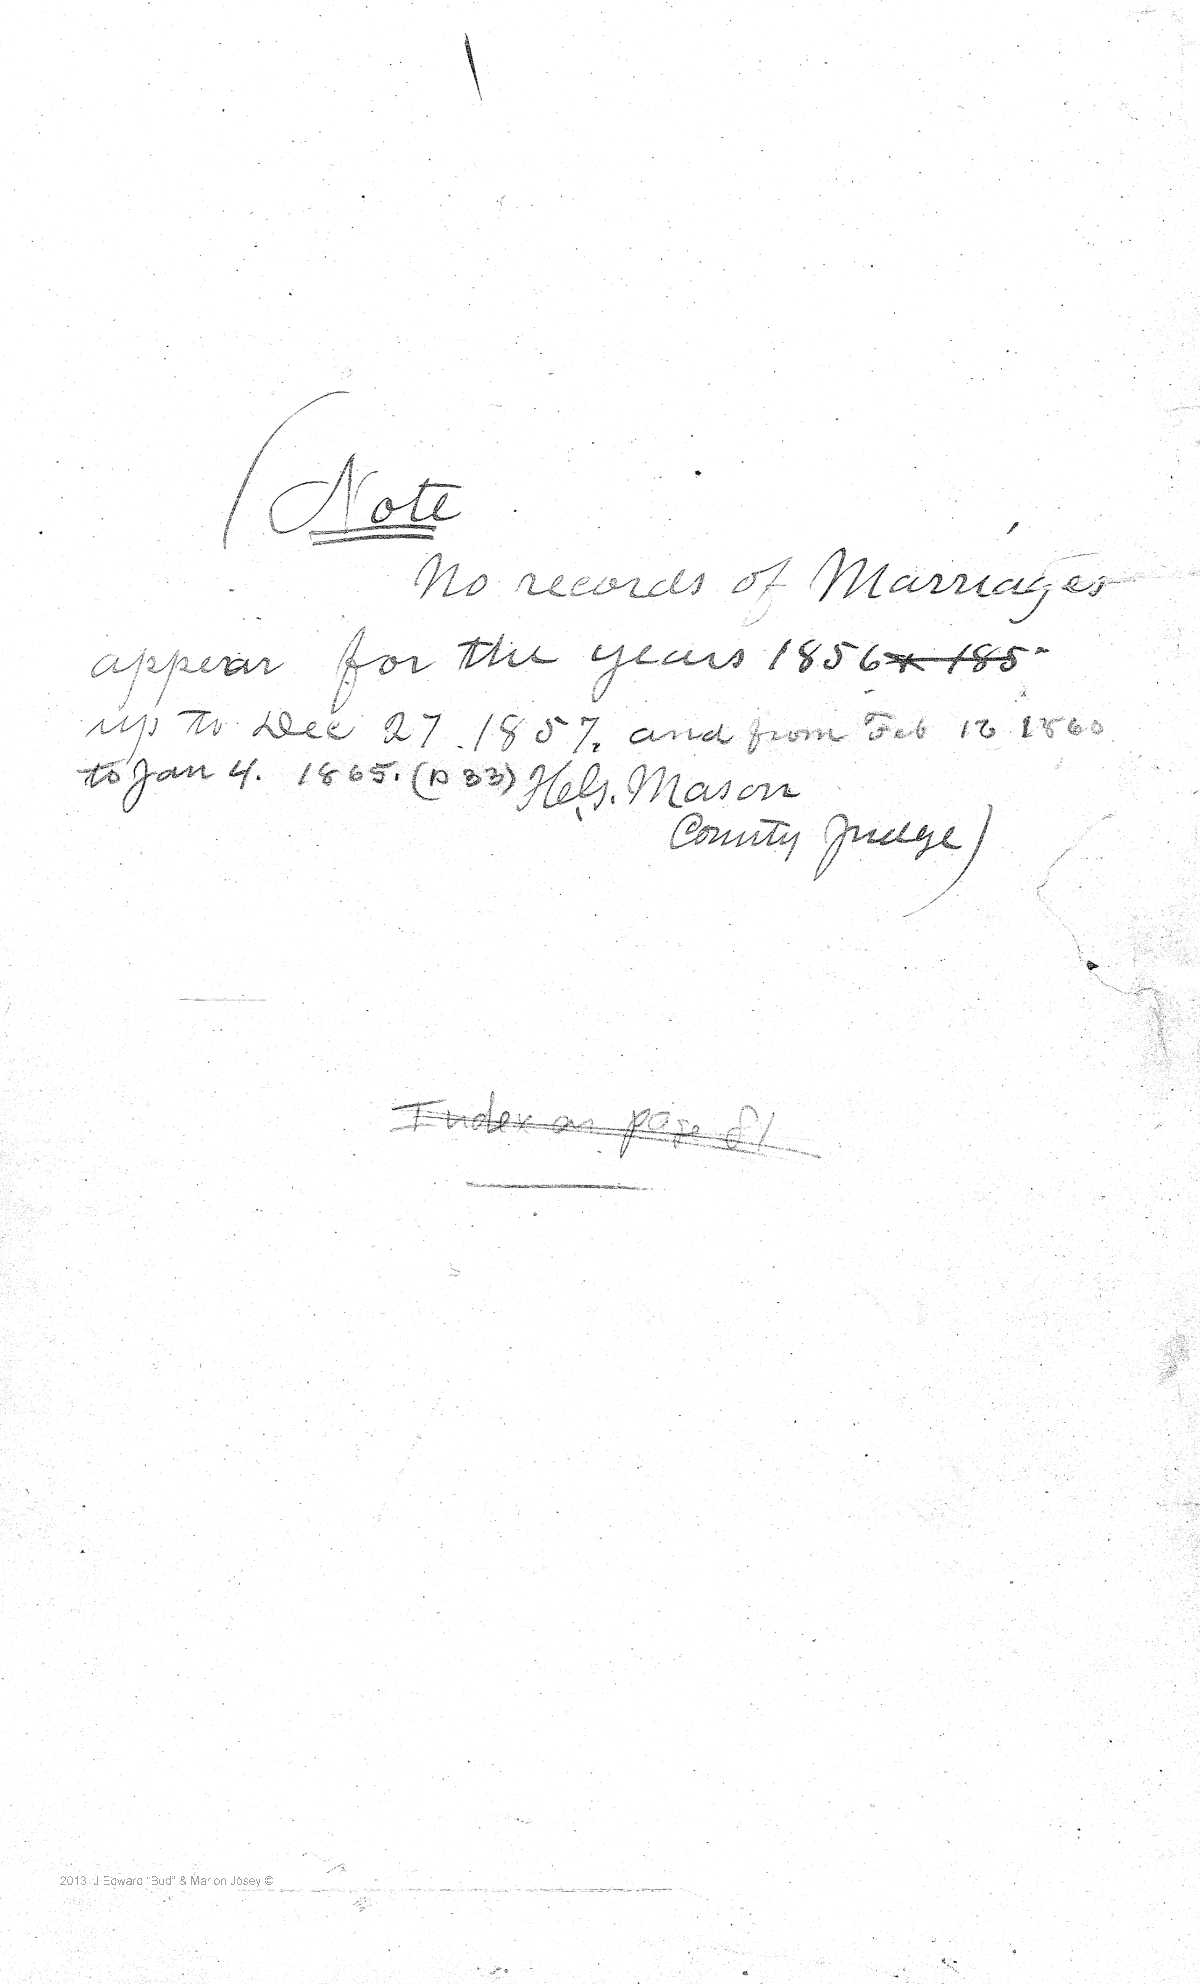 (Note
No records of Marriages
appear for the years 1856 x 185-
up to Dec 27. 1857. and from Feb 1860
to Jan 4. 1865. (p 33) H.G. Mason
County Judge)
Index on page 81
2013 J Edward "Bud" & Marion Josey ©